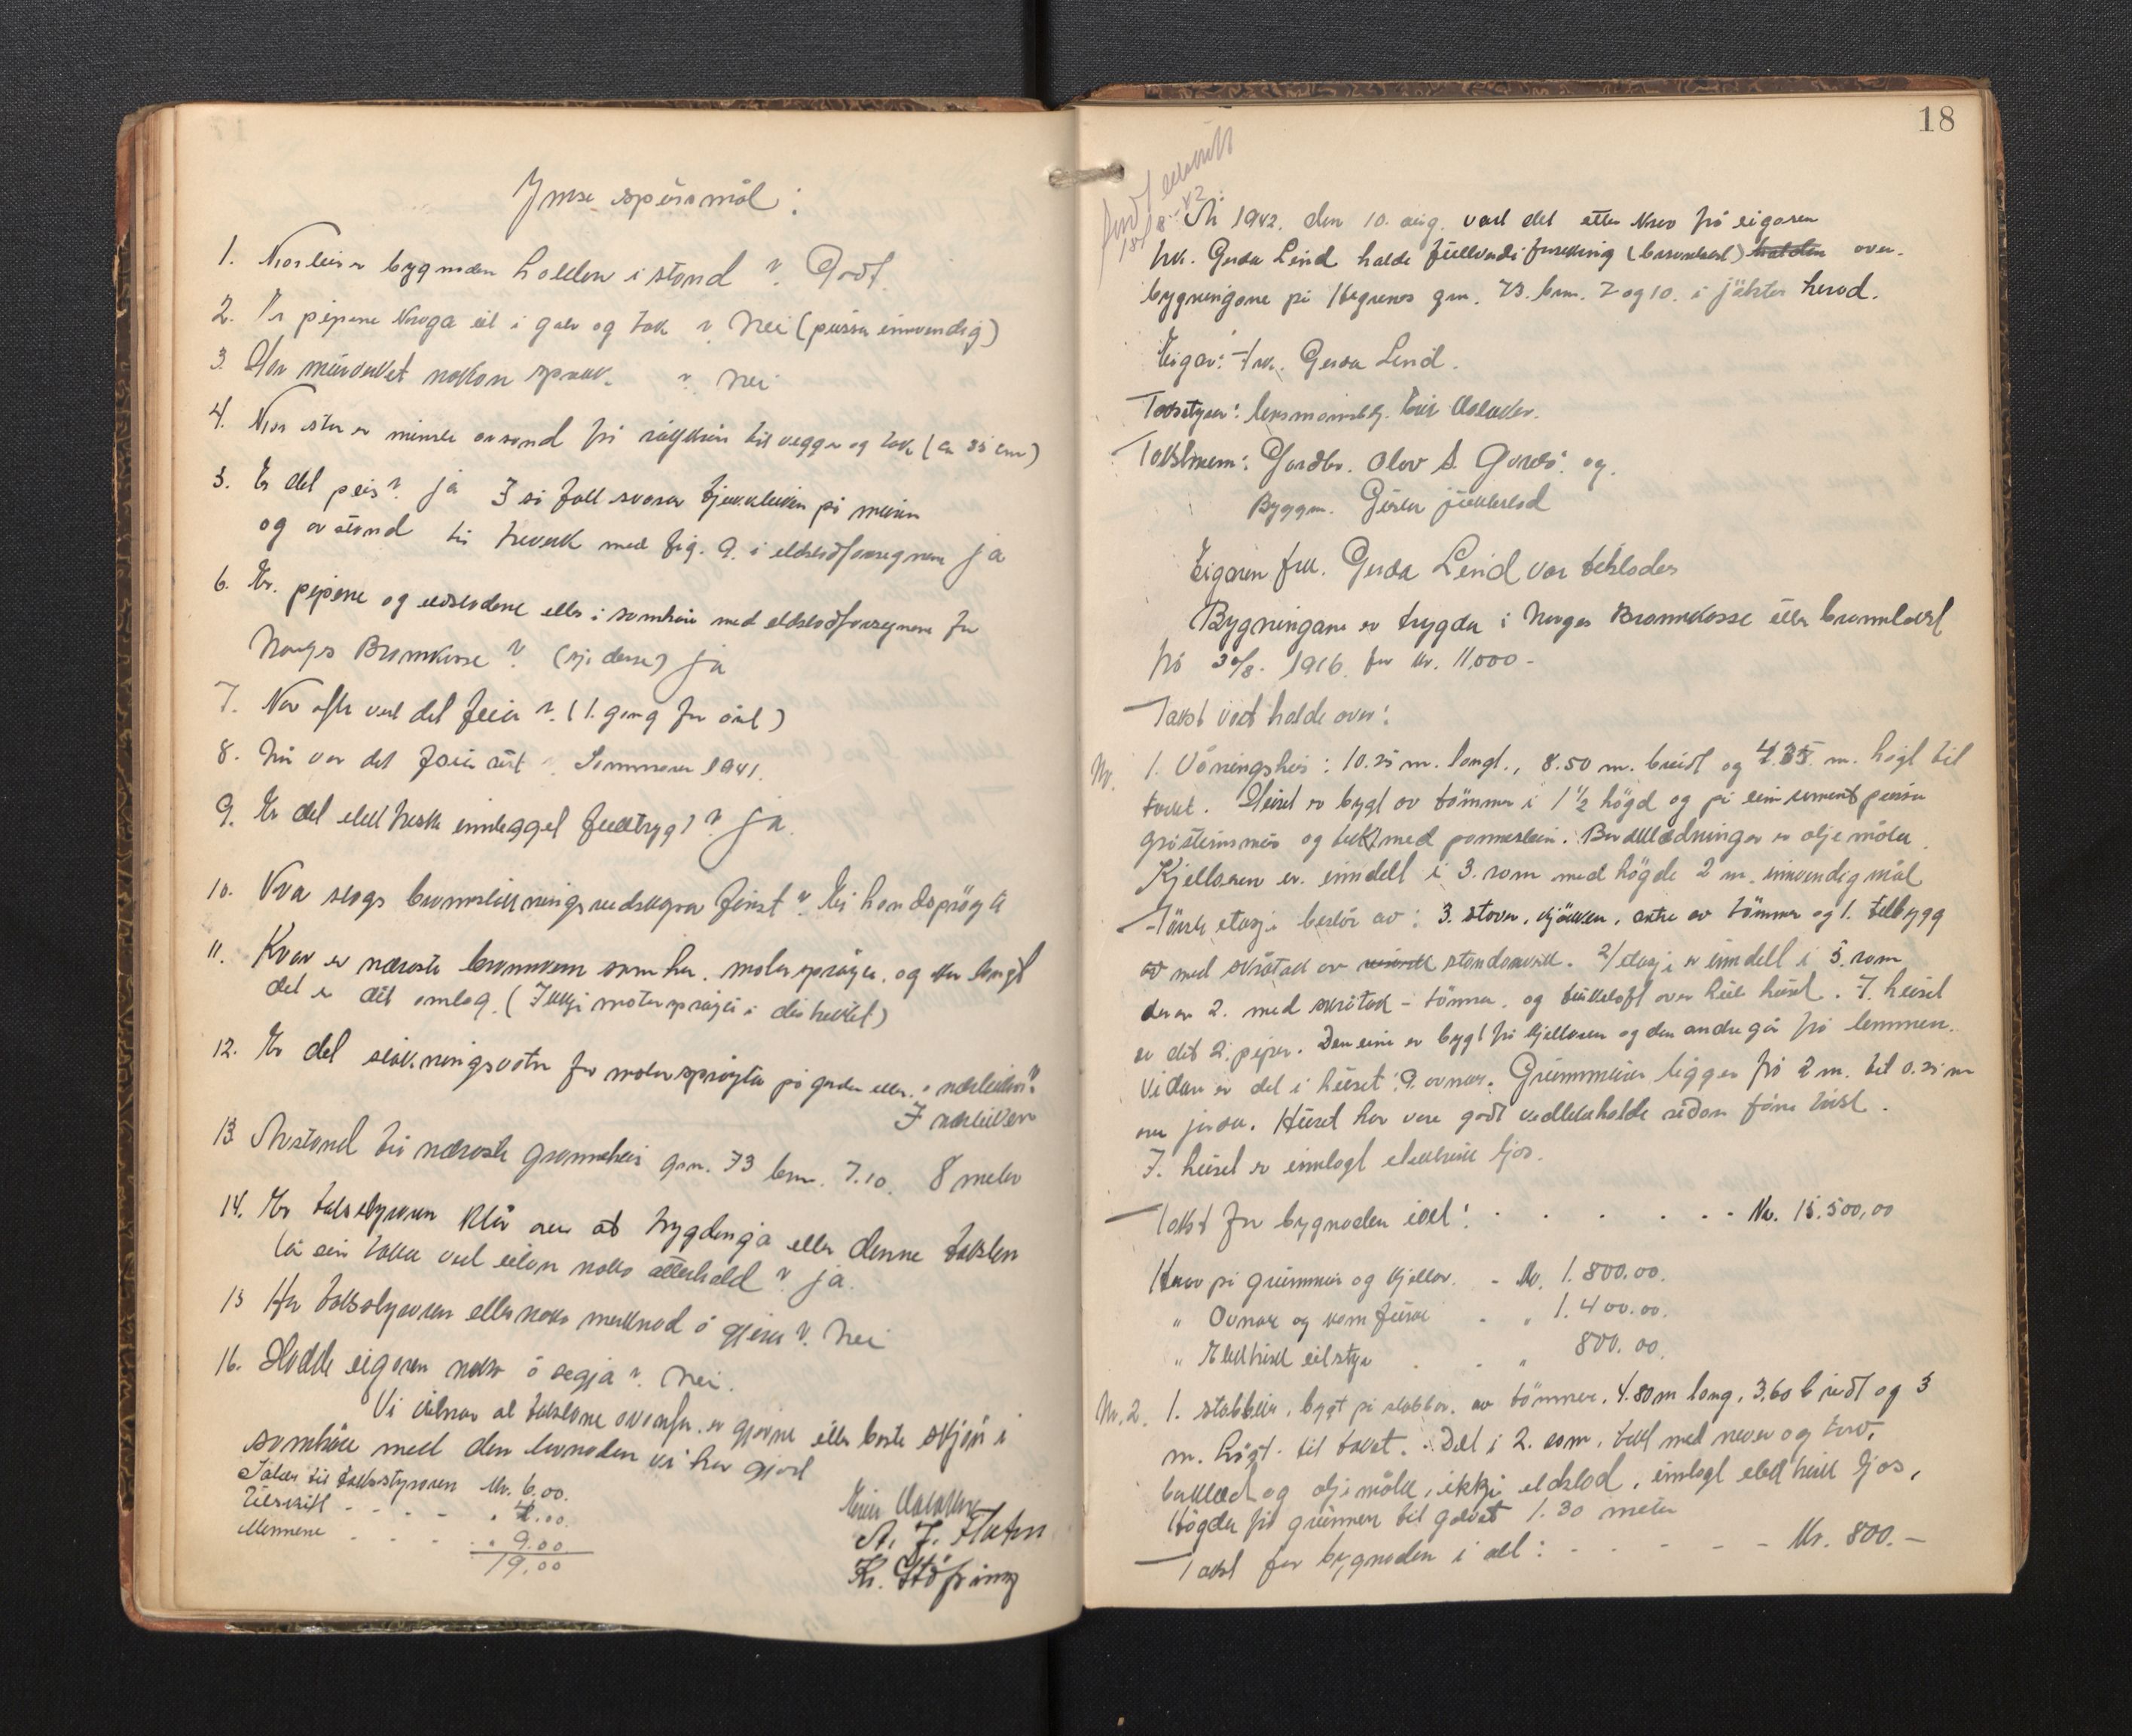 Ymse spörsmål:
1. Korleis er bygnaden halden i stand? Godt.
2. Er pipene kroga til i golv og tak ? Nei (pussa innvendig)
3. Har murverket nokon sprekk. ? Nei
4. Kor stor er minste avstand frå røykrør til vegger og tak (ca 35 cm)
5. Er det peis? ja I så fall svarar tjukkleiken på muren
og avstand til treverk med fig. 9. i eldstadforsegnene ja
6. Er. pipene og eldstadene elles i samhøve med eldstadforsegnene for
Norges Brannkasse? (sjå desse) ja
7. Kor ofte vert det feia ?. (1. gong for året)
8. Når var det feia sist ? Sommaren 1941.
9. Er det elektriske innlegget fulltrygt? ja.
10. Kva slags brannsløkkningsreidskapar finst? Ei handsprøyta
11. Kvar er næraste brannvern som har. motorsprøyta, og kor langt
det er dit omlag. (Ikkje motorsprøyta i distriktet)
12. Er det sløkningsvatn for motorsprøyta på garden eller i nærleiken?
I nærleiken
13. Avstand til næraste grannehus grn. 73 brn. 7.10. 8 meter
14. Er takststyraren klår over at trygdinga etter denne taksten
tå sin taka ved utan noko atterhald? ja.
15 Har takststyraren elles noko merknad å gjera? Nei
16. Hadde eigaren noko å segja? Nei.
Vi vitnar at takstane ovanfor er gjevne etter beste skjøn i
samhøve med den lovnaden vi har gjort
Salær til takststyraren Kr. 6.00.
Utskrift - - - - " 4.00.
Mennene - - - " 9.00
19,00
A. J. Hatm
Kr. Støfring
18
18/8-42
År 1942. den 10. aug. vart det etter krav frå eigaren
frk. Gerda Lind halde fullverdi forretning (branntakst) halden over.
bygningane på grn. 73. brn. 7 og 10. i Jølster herad.
Eigar: Frk. Gerda Lind.
Takststyrar: lensmannsbtj.
Takstmenn: Gardbr. Olav S. og.
Byggm.
Eigaren frk. Gerda Lind var tilstades
Bygningane er trygda i Norges Brannkasse etter branntakst
frå 30/8. 1916. for kr. 11,000-
Takst vart halde over:
Nr. 1. Våningshus: 10.25 m. langt., 8.50 m. breidt og 4.35 m. høgt til
taket. Huset er bygt av tömmer i 1 1/2 högd og på ein sement pussa
gråsteinsmur og tekt med pannestein. Bordklædningen er oljemåla.
Kjellaren er. inndelt i 3. rom med högde 2 m. innvendig mål
Fårste etasje består av: 3. stover, kjökken, entre av tömmer og 1. tilbygg
av med skråtak av standarverk. 2/etasje er inndelt i 5. rom
der er 2. med skråtak - tömmer. og tukkeloft over heile huset. I. huset
er det 2. piper. Den eine er bygt frå kjellaren og den andre går frå lemmen.
Vidare er det i huset: 9. ovnar. Grunnmuren ligger frå 2 m. til 0.25 m
over jorda. Huset har vore godt vedlikehalde sidan förre takst.
I. huset er innlagt elektrisk ljos.
Takst for bygnaden ialt: . . . . . - - Kr. 15.500,00
Herav på grunnmur og kjellar. - Kr. 1.800.00.
" Ovnar og komfurar - " 1.400.00.
" Elektrisk utstyr . - " 800.00.
Nr. 2. 1. stabbur, bygt på stabbar. av tömmer. 4.80 m lang, 3,60 breidt og 3
m. högt til taket. Delt i 2. rom, tekt med never og torv,
bukklædt og oljemåla, ikkje eldstad, innlagt elektrisk ljos,
Högda frå grunnen til golvet 1.30 meter
Takst for bygnaden i alt: - - - - - Kr. 800.-